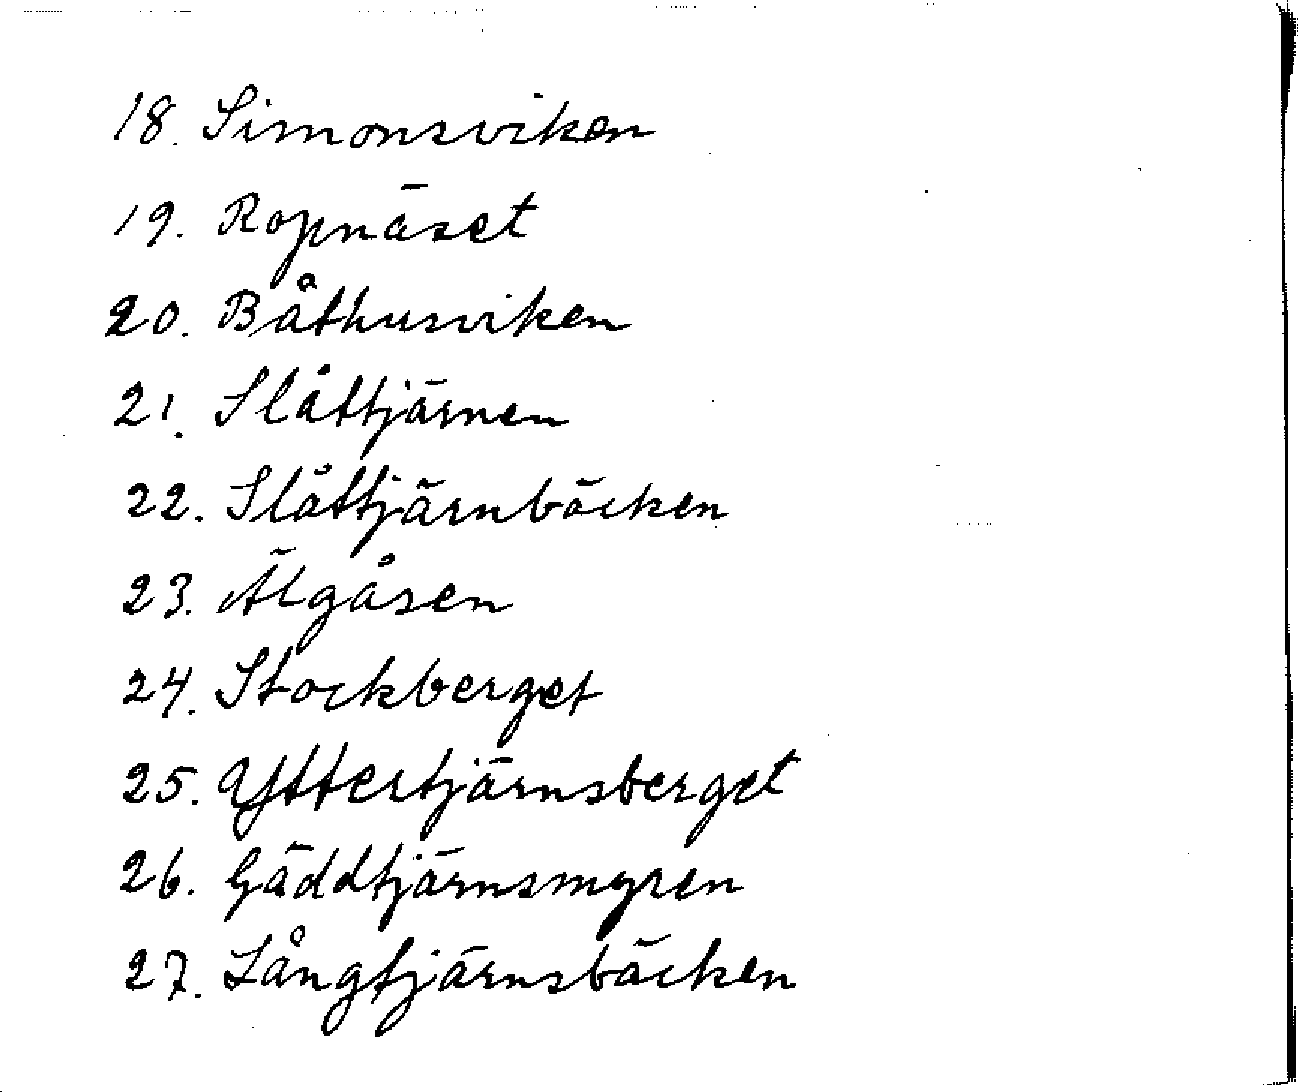 18. Simonsviken
19. Ropnäset
20. Båthusviken
21. Slåttjärnen
22. Slåttjärnbäcken
23. Älgåsen
24. Stockberget
25. Yttertjärnsberget
26. Gäddtjärnsmyren
27. Långtjärnsbäcken